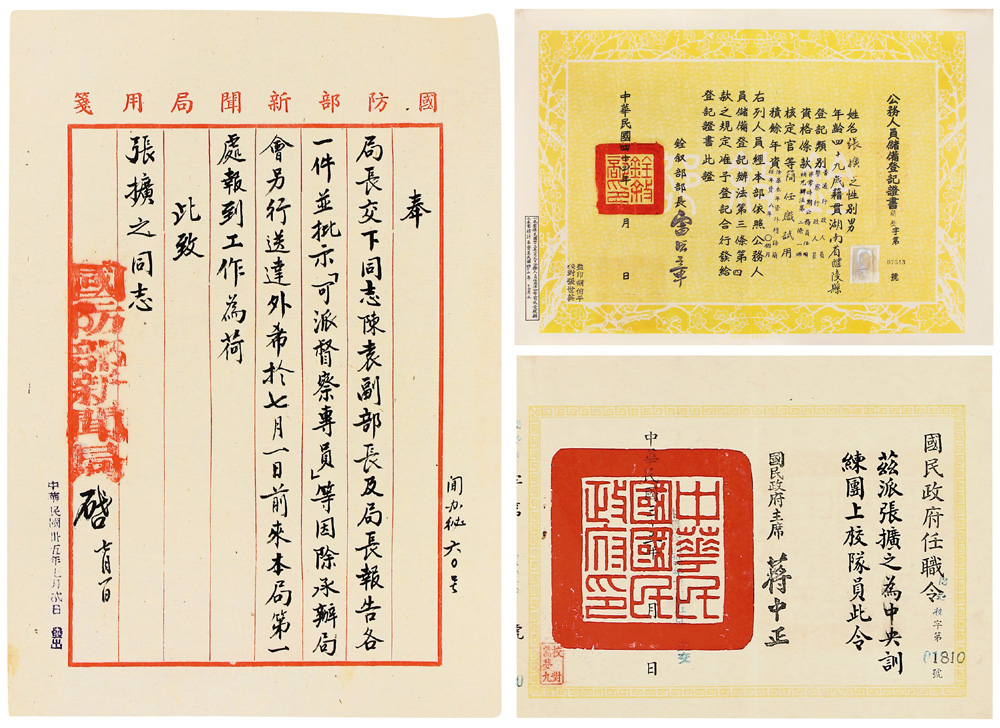 國防部新聞局用箋
奉
局長交下同志陳袁副部長及局長報告各
一件並批示「可派督察專員」等因除承辦局
會另行送達外希於七月一日前來本局第一
處報到工作為荷
此致
張擴之同志
國防部新聞局
啓
中華民國卅五年七月貳日
發出
公務人員儲備登記證書
字第
號
姓名張擴之性別男
年齡四十九歲籍貫湖南省醴陵縣
登記類別
資格條款
核定官等簡任職試用
積餘年資
右列人員經本部依照公務人
員儲備登記辦法第三條第四
款之規定准予登記合行發給
登記證書此證
銓敘部部長
中華民國四十
年
月
日
國民政府任職令
字第
1810
號
茲派張擴之為中央訓
練團上校隊員此令
國民政府主席
蔣中正
中華民國三十
年
月
日
中華民國國民政府印
校對